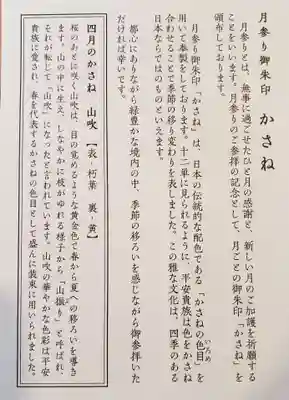 月参り御朱印 かさね
月参りとは、無事に過ごせたひと月の感謝と、新しい月のご加護を祈願する
ことをいいます。月参りのご参拝の記念として、月ごとの御朱印「かさね」を
頒布しております。
月参り御朱印「かさね」は、日本の伝統的な配色である「かさねの色目」を
いろめ
用いて奉製をしております。十二単に見られるように、平安貴族は色をかさね
合わせることで季節の移り変わりを表しました。この雅な文化は、四季のある
日本ならではのものといえます。
都心にありながら緑豊かな境内の中、季節の移ろいを感じながら御参拝いた
だければ幸いです。
四月のかさね 山吹 【表・朽葉 裏・黄】
桜のあとに咲く山吹は、目の覚めるような黄金色で春から夏への移ろいを導き
ます。山の中に生え、しなやかに枝がゆれる様子から「山振り」と呼ばれ、
それが転じて「山吹」になったと言われています。山吹の華やかな色彩は平安
貴族に愛され、春を代表するかさねの色目として盛んに装束に用いられました。